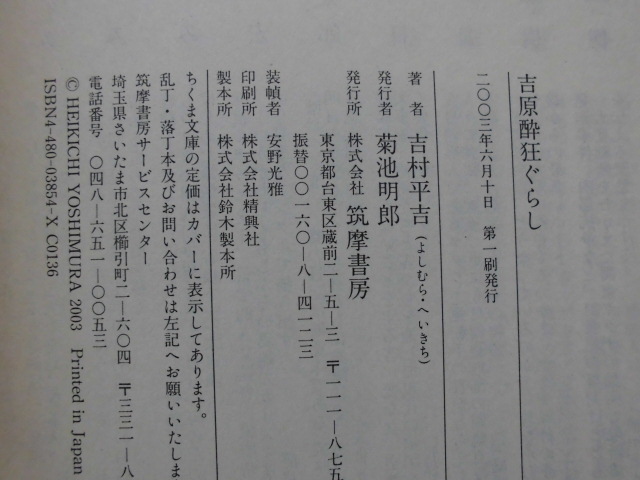 吉原酔狂ぐらし
二〇〇三年六月十日　第一刷発行
著　者　吉村平吉（よしむら・へいきち）
発行者　菊池明郎
発行所　株式会社　筑摩書房
東京都台東区蔵前二—五—三　〒一一一—八七五
振替〇〇一六〇—八—四一二三
装幀者　安野光雅
印刷所　株式会社精興社
製本所　株式会社鈴木製本所
ちくま文庫の定価はカバーに表示してあります。
乱丁・落丁本及びお問い合わせは左記へお願いいたしま
筑摩書房サービスセンター
埼玉県さいたま市北区櫛引町二—六〇四　〒三三一—八
電話番号　〇四八—六五一—〇〇五三
© HEIKICHI YOSHIMURA 2003　Printed in Japan
ISBN4-480-03854-X C0136